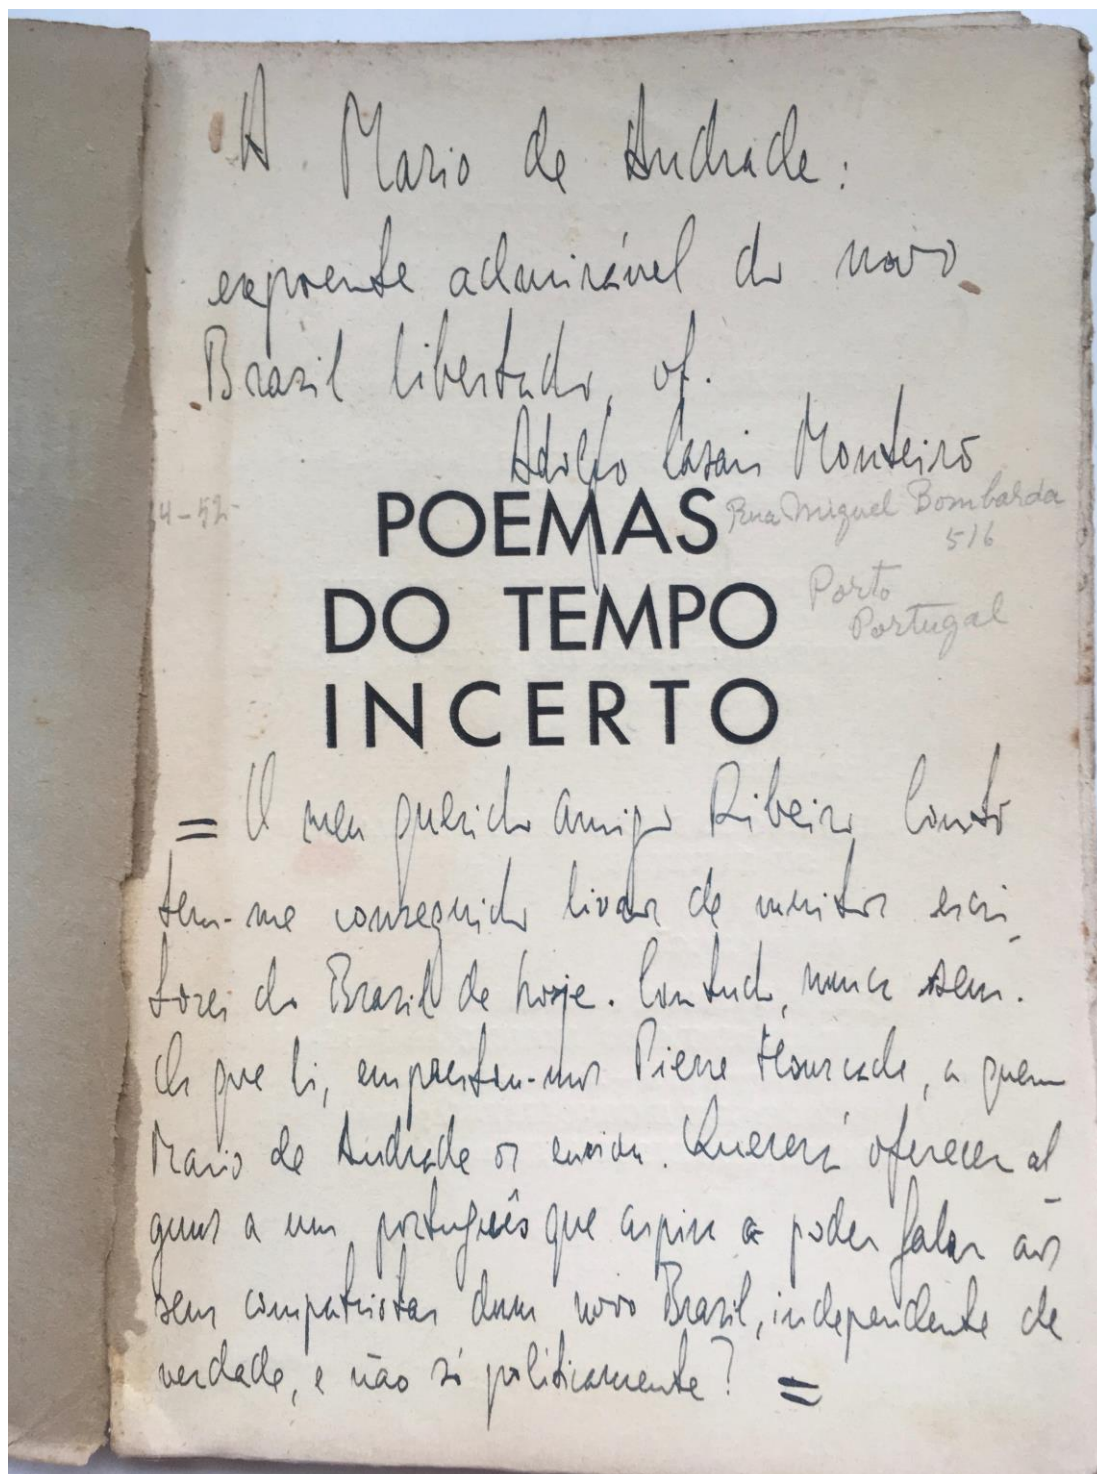 A Mario de Andrade:
expoente admirável do novo
Brazil libertado, of.
Adolfo Casais Monteiro
4-52-
POEMAS
Rua Miguel Bombarda
516
DO TEMPO
Porto
Portugal
INCERTO
= O meu querido amigo Ribeiro Couto
tem-me conseguido livros de muitos escri-
tores do Brazil de hoje. Contudo, nunca seus.
Os que li, emprestou-mos Pierre Hourcade, a quem
Mario de Andrade os enviou. Quererá oferecer al-
guns a um português que aspira a poder falar aos
seus compatriotas dum novo Brazil, independente de
verdade, e não só politicamente? =